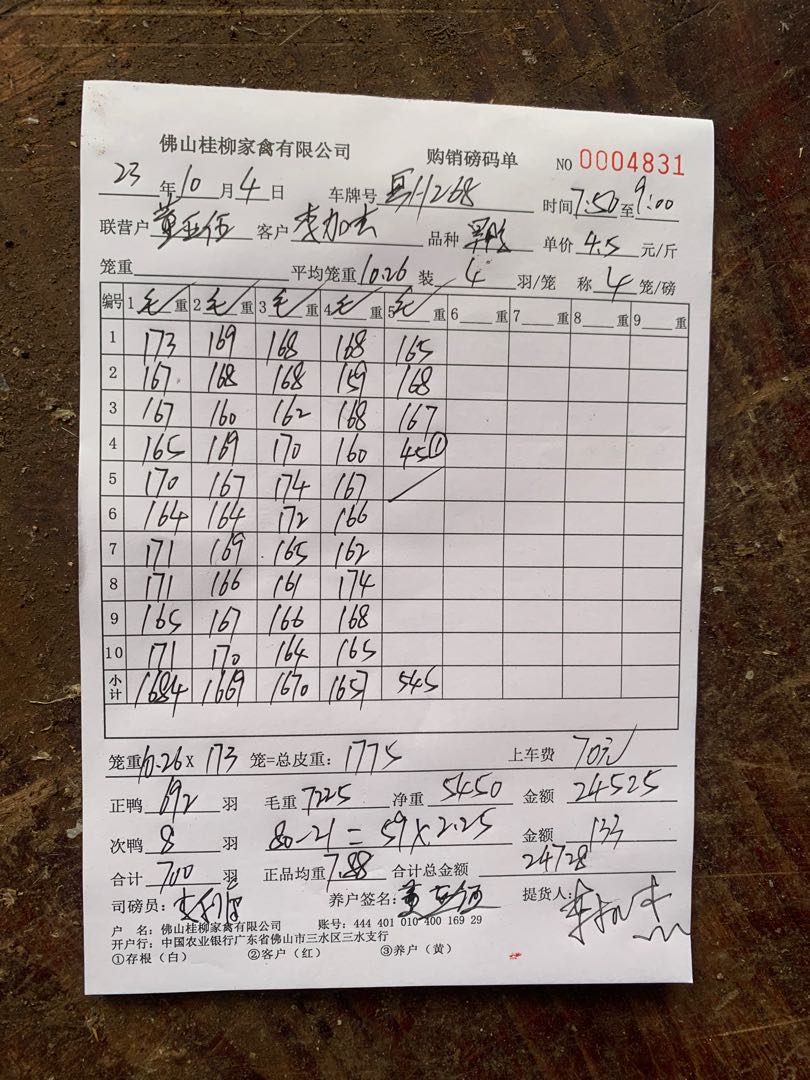 佛山桂柳家禽有限公司 购销磅码单 NO 0004831
23 年 10 月 4 日 车牌号 11268 时间 7:50 至 9:00
联营户 董亚伍 客户 李加杰 品种 单价 4.5 元/斤
笼重 平均笼重 10.26 装 4 羽/笼 称 4 笼/磅
编号 1 毛 重 2 毛 重 3 毛 重 4 毛 重 5 毛 重 6 重 7 重 8 重 9 重
1 173 169 168 168 165
2 167 168 168 159 168
3 167 160 162 168 167
4 165 169 170 160 45①
5 170 167 174 167
6 164 164 172 166
7 171 169 165 162
8 171 166 161 174
9 165 167 166 168
10 171 170 164 165
小计 1684 1669 1670 1657 545
笼重 10.26 x 173 笼=总皮重: 1775 上车费 70元
正鸭 692 羽 毛重 7225 净重 5450 金额 24525
次鸭 8 羽 80-21=59×2.25 金额 133
合计 700 羽 正品均重 7.88 合计总金额 24728
司磅员: 养户签名: 董亚伍 提货人: 李加杰
户 名: 佛山桂柳家禽有限公司 账号: 444 401 010 400 169 29
开户行: 中国农业银行广东省佛山市三水区三水支行
①存根(白) ②客户(红) ③养户(黄)